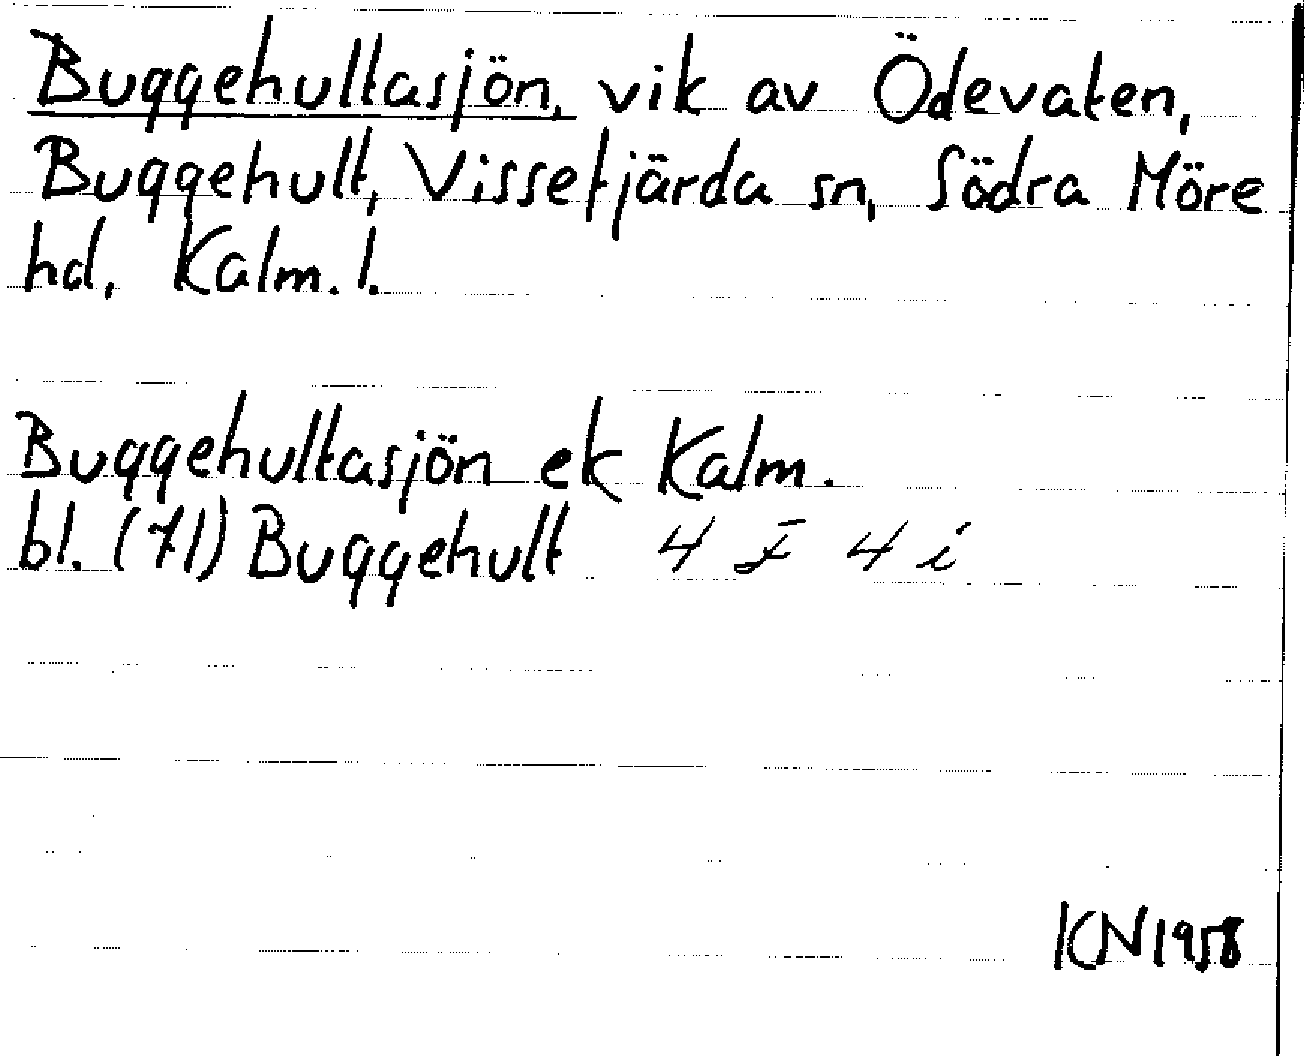 Buggehultasjön, vik av Ödevaten,
Buggehult, Vissefjärda sn, Södra Möre
hd, Kalm. l.
Buggehultasjön ek Kalm.
bl. (71) Buggehult 4 F 4 i
KN 1958